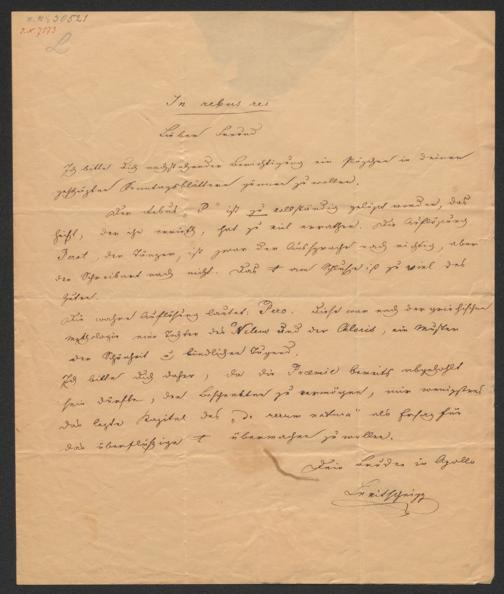 I.N. 30521
I.N. 7073
L
In rebus res
Lieber Freund
Ich bitte Dich nachstehender Berichtigung ein Plätzchen in deinen
geschätzten Sonntagsblättern gönnen zu wollen.
Der Rebus „P“ ist zu vollständig gelöst worden, das
heißt, der ihn errieth, hat zu viel errathen. Die Auflösung
der Tänzer, ist zwar der Aussprache nach richtig, aber
der Schreibart nach nicht. Das t am Schluße ist zu viel des
Guten.
Die wahre Auflösung lautet: Pero. Diese war nach der griechischen
Mythologie eine Tochter des Neleus und der Chloris, ein Muster
der Schönheit u kindlichen Tugend.
Ich bitte Dich daher, da die Prämie bereits abgeholt
sein dürfte, den Beschenkten zu vermögen, mir wenigstens
das letzte Kapitel des „De rerum natura“ als Ersatz für
das überflüßige t übermachen zu wollen.
Dein Bruder in Apollo